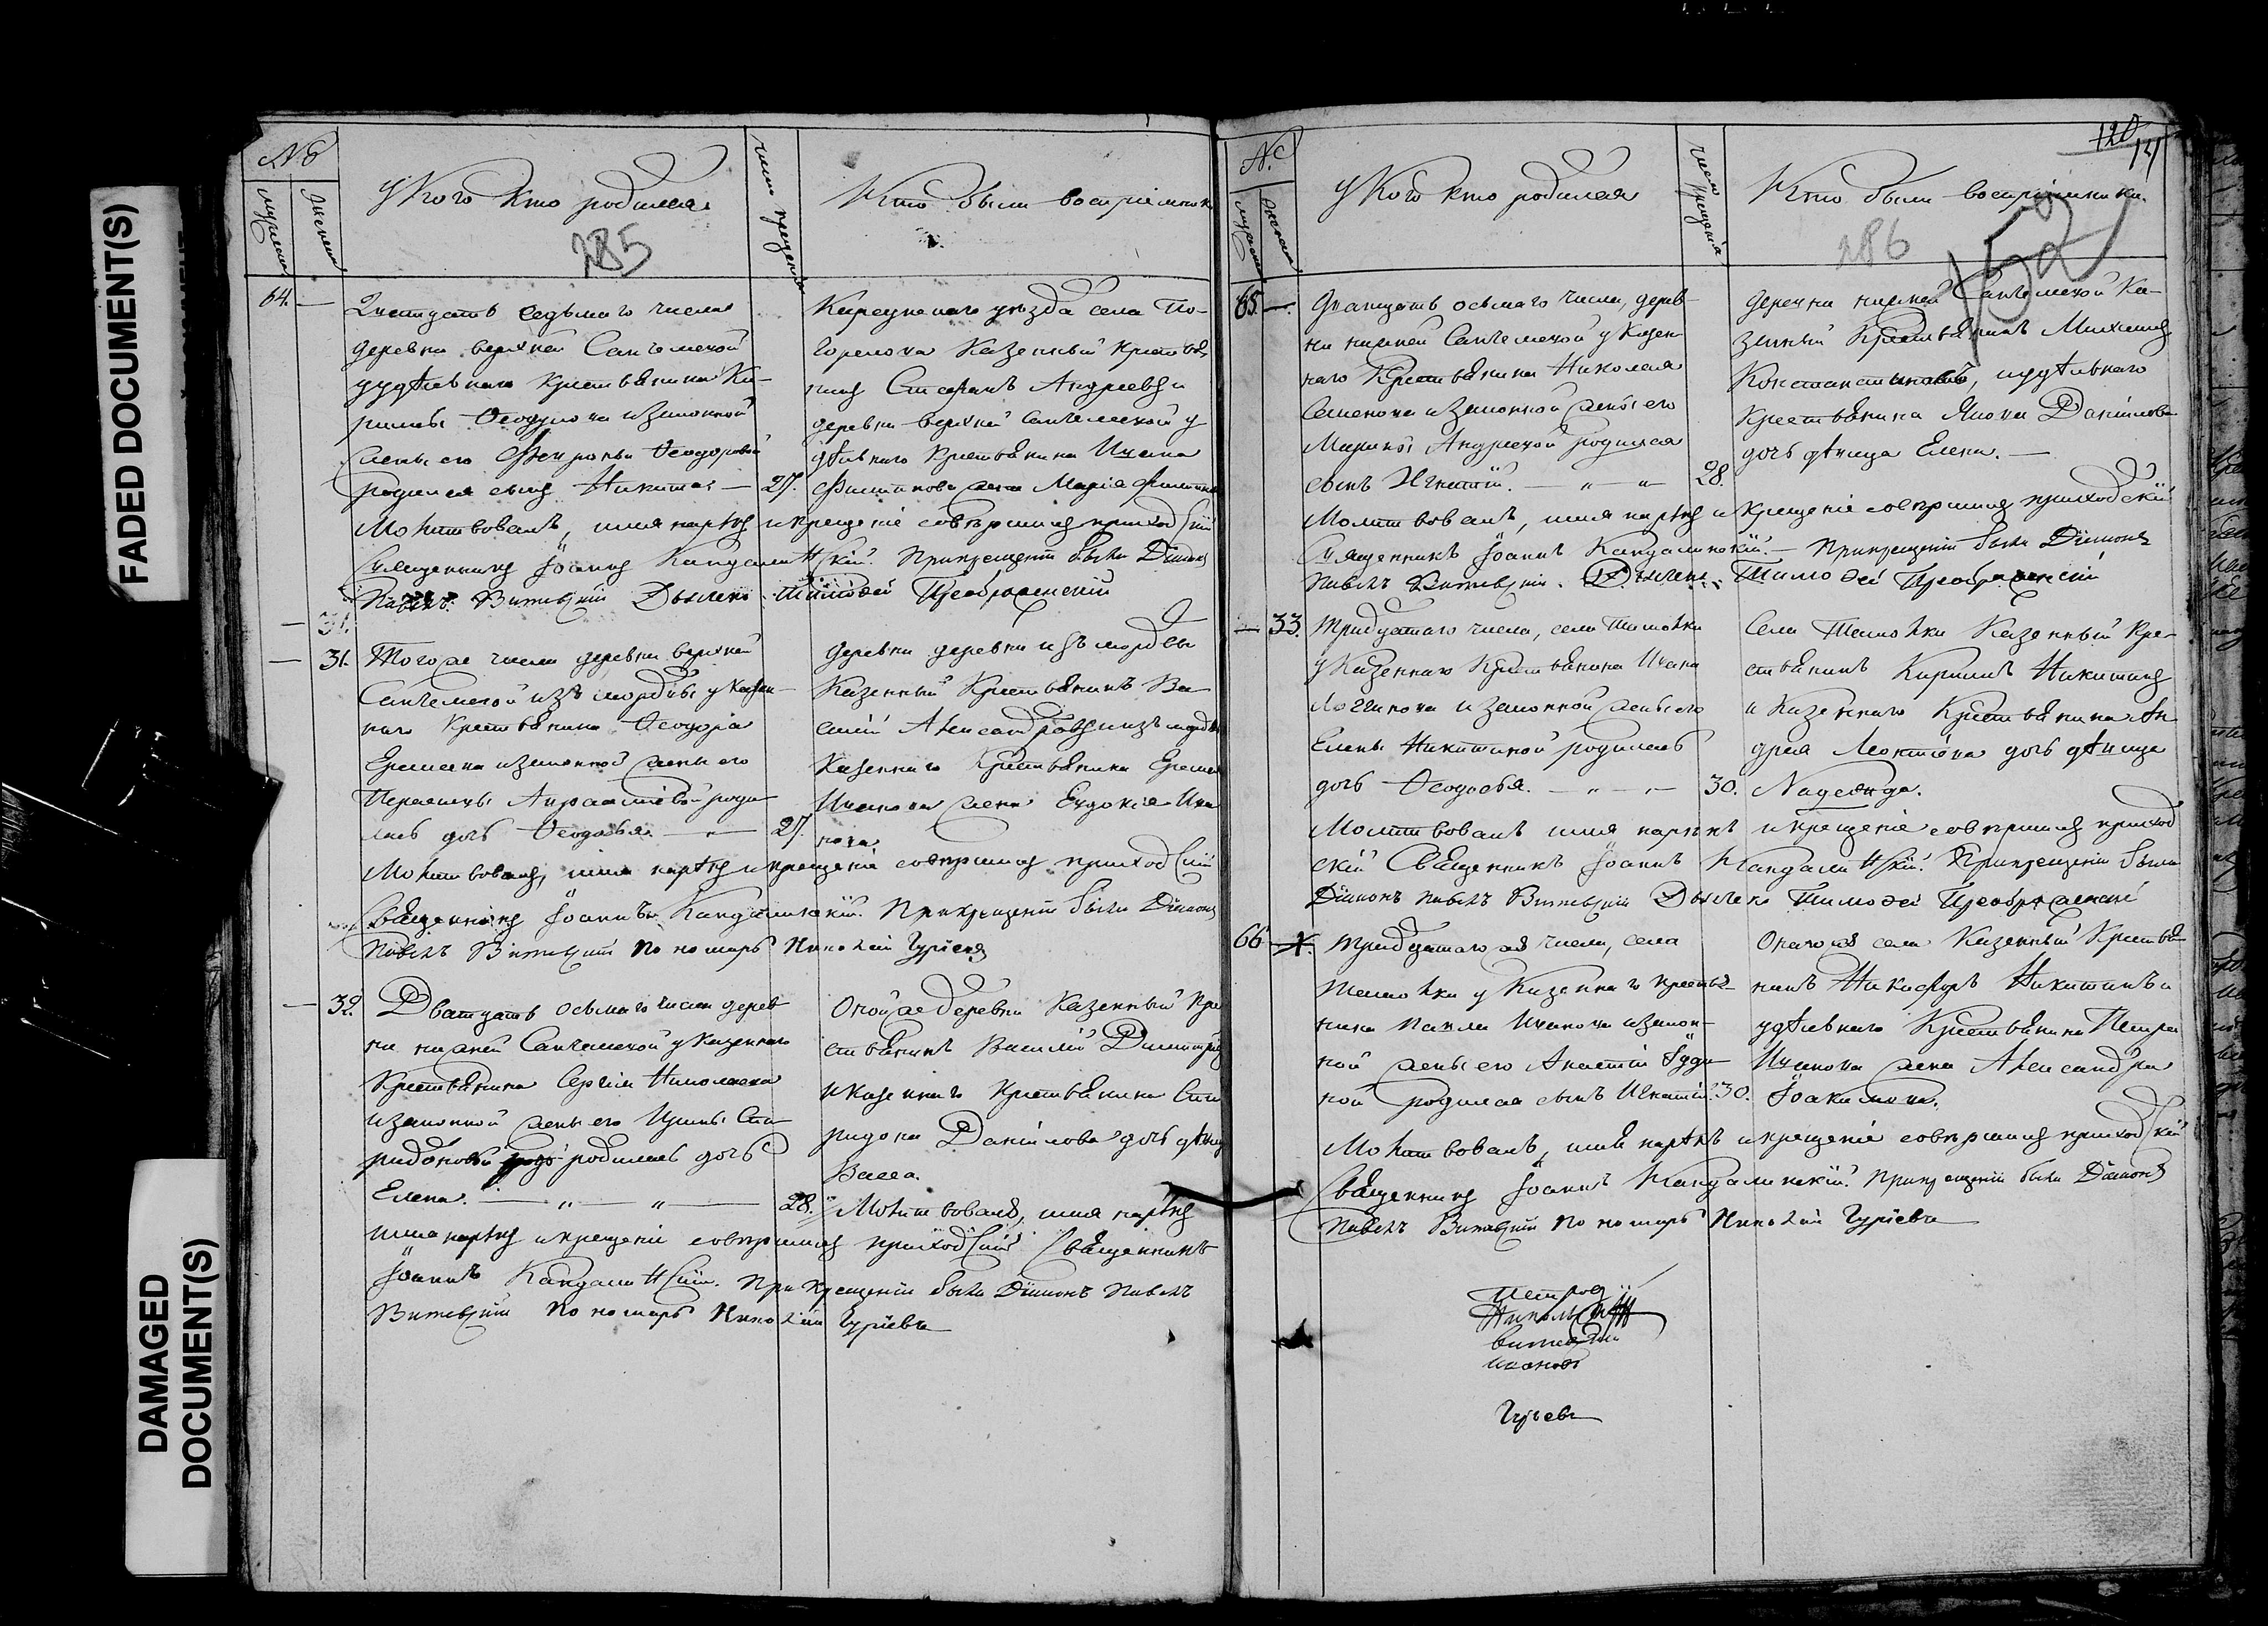 FADED DOCUMENT(S)
DAMAGED
DOCUMENT(S)
№
мужеска
женска
У кого кто родился
285
число крещенiя
Кто были воспрiемники
64. —
Дватцать седьмаго числа
деревни верхней Санчелеевой
у удѣльнаго крестьянина Ки-
рилы Ѳеодулова и законной
жены его Ѳеодоровой
родился сынъ Никита — 27.
села По-
горелова Казенный крестья
нинъ Стефанъ Андреевъ и
деревни верхней Санчелеевой у
дѣльнаго крестьянина Ивана
Филипова жена Марiя Филипова
Молитвовалъ, имя нарѣкъ и крещенiе совершилъ приходскiй
Священникъ Iоаннъ Кандалинскiй. При крещенiи были Дiаконъ
Павелъ Витевскiй Дьячекъ Тимоѳей Преображенскiй
31.
— 31.
Того же числа деревни верхней
Санчелеевой изъ мордвы у казен-
наго крестьянина Ѳеодора
Еремеева и законной жены его
родi
лась дочь Ѳеодосья — 27
деревни деревни изъ мордвы
Казенный Крестьянинъ Ва-
силiй Александровъ и изъ мордвы
Казеннаго крестьянина
Иванова жена Евдокiя Ива
нова
Молитвовалъ, имя нарѣкъ и крещенiе совершилъ приходскiй
Священникъ Iоаннъ Кандалинскiй. При крещенiи были Дiаконъ
Павелъ Витевскiй Пономарь Николай Гурiевъ
— 32.
Дватцать осьмаго числа дерев
ни нижней Санчелеевой у Казеннаго
Крестьянина Сергiя Николаева
и законной жены его Ирины Спи
ридоновой родилась дочь
Елена. — „ — „ — 28.
Оной же деревни Казенный кре
стьянинъ Василiй Димитрiевъ
и казеннаго крестьянина Спи
ридона Данiлова дочь дѣвица
Васса.
Молитвовалъ, имя нарѣкъ
имя нарѣкъ и крещенiе совершилъ приходскiй Священникъ
Iоаннъ Кандалинскiй. При крещенiи были Дiаконъ Павелъ
Витевскiй Пономарь Николай Гурiевъ
120
121
№
мужеска
женска
У кого кто родился
число крещенiя
Кто были воспрiемники.
286
152
65. —.
Дватцать осьмаго числа, дерев-
ни нижней Санчелеевой у Казен-
наго Крестьянина Николая
Семенова и законной жены его
Марины Андреевой родился
сынъ Игнатiй. — „ — „ — 28.
деревни нижней Санчелеевой Ка-
зенный Крестьянинъ Михаилъ
Константиновъ, и удѣльнаго
крестьянина Якова Данiлова
дочь дѣвица Елена. —
Молитвовалъ, имя нарѣкъ и крещенiе совершилъ приходскiй
Священникъ Iоаннъ Кандалинскiй. — При крещенiи были Дiаконъ
Павелъ Витевскiй. Дьячекъ Тимоѳей Преображенскiй
— 33.
Тридцатаго числа, села Ташолки
у Казеннаго Крестьянина Ивана
Логинова и законной жены его
Елены Никитиной родилась
дочь Ѳеодосья. — „ — „ — 30.
Села Ташолки Казенный Кре-
стьянинъ Кирилъ Никитинъ
и Казеннаго Крестьянина Ан
дрея Леонтiева дочь дѣвица
Надежда.
Молитвовалъ имя нарѣкъ и крещенiе совершилъ приход
скiй Священникъ Iоаннъ Кандалинскiй. При крещенiи были
Дiаконъ Павелъ Витевскiй Дьячекъ Тимоѳей Преображенскiй
66 —.
Тридцатаго же числа, села
Ташолки у Казеннаго крестья-
нина Павла Иванова и закон-
ной жены его
ной родился сынъ Игнатiй. 30.
Онаго же села Казенный Крестья
нинъ Никифоръ Никитинъ и
удѣльнаго Крестьянина Петра
Иванова жена Александра
Iоакимова.
Молитвовалъ, имя нарѣкъ и крещенiе совершилъ приходскiй
Священникъ Iоаннъ Кандалинскiй. При крещенiи были Дiаконъ
Павелъ Витевскiй Пономарь Николай Гурiевъ
Витевскiй
Гурьевъ